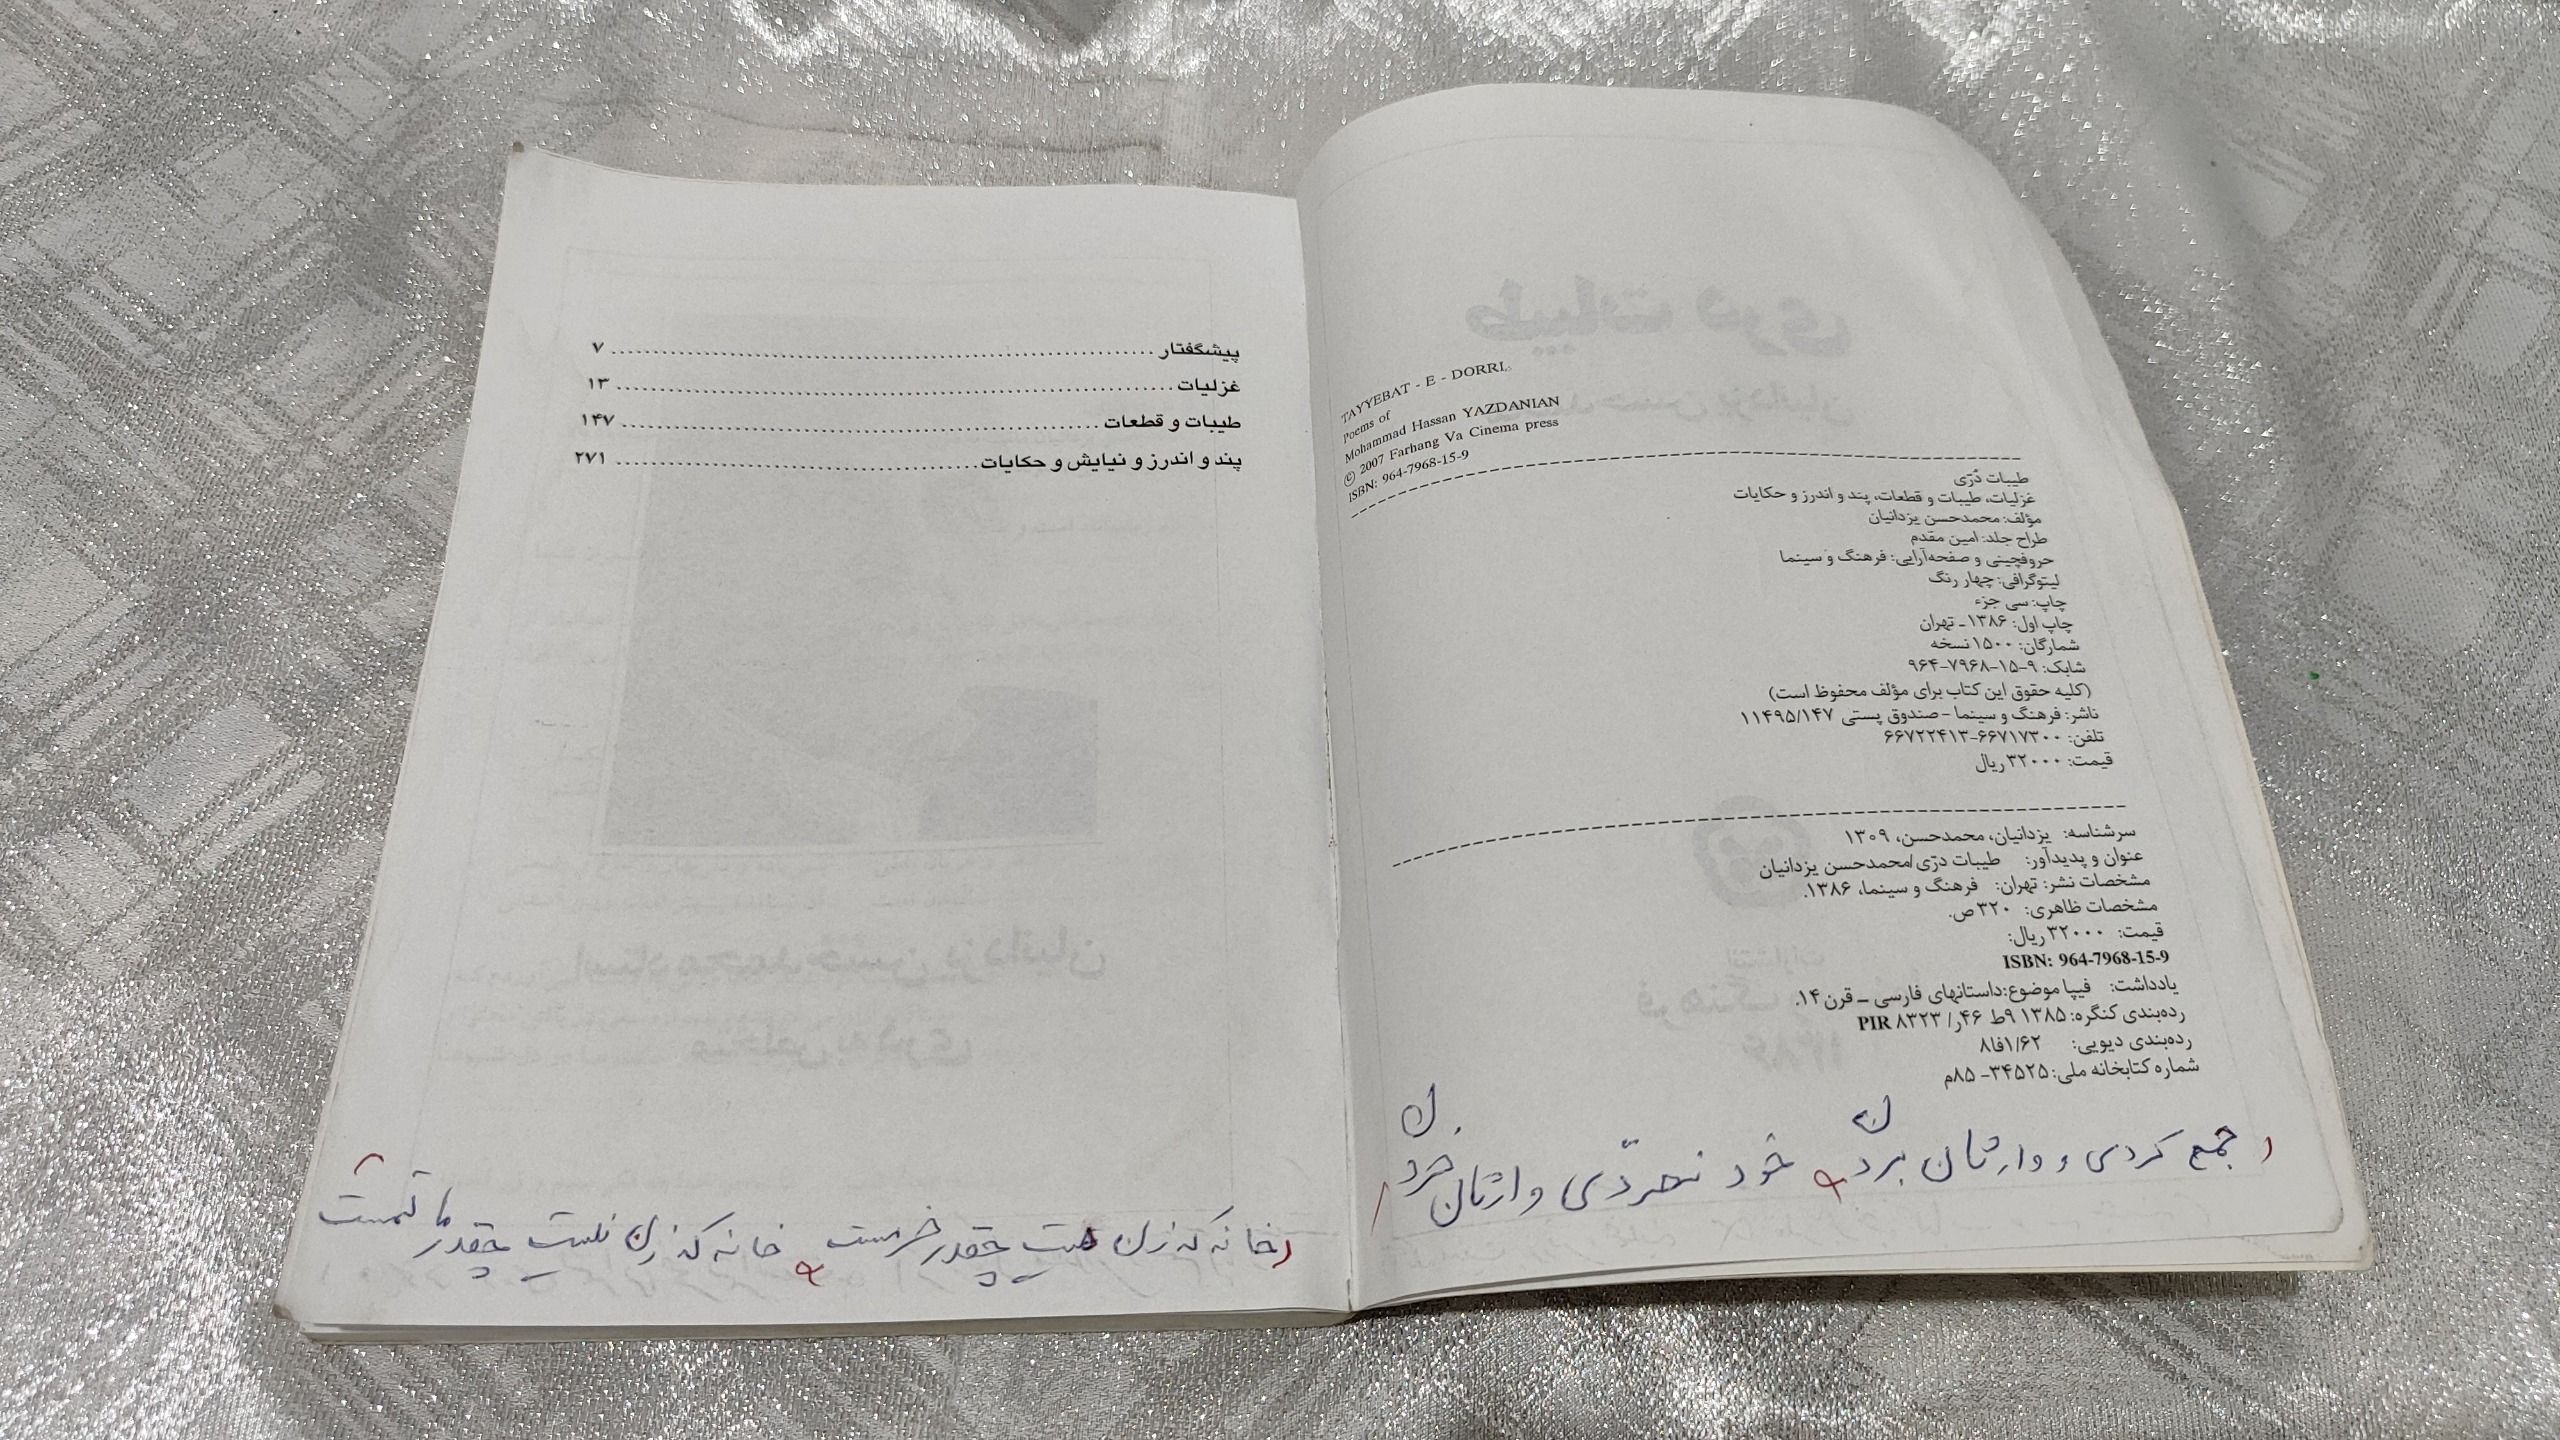 TAYYEBAT - E - DORRI
Poems of
Mohammad Hassan YAZDANIAN
© 2007 Farhang Va Cinema press
ISBN: 964-7968-15-9
طیبات دُرّی
غزلیات، طیبات و قطعات، پند و اندرز و حکایات
مؤلف: محمدحسن یزدانیان
طراح جلد: امین مقدم
حروفچینی و صفحه‌آرایی: فرهنگ و سینما
لیتوگرافی: چهار رنگ
چاپ: سی جزء
چاپ اول: ۱۳۸۶ ـ تهران
شمارگان: ۱۵۰۰ نسخه
شابک: ۹-۱۵-۷۹۶۸-۹۶۴
(کلیه حقوق این کتاب برای مؤلف محفوظ است)
ناشر: فرهنگ و سینما - صندوق پستی ۱۱۴۹۵/۱۴۷
تلفن: ۶۶۷۱۷۳۰۰-۶۶۷۲۲۴۱۳
قیمت: ۳۲۰۰۰ ریال
سرشناسه: یزدانیان، محمدحسن، ۱۳۰۹
عنوان و پدیدآور: طیبات درّی/محمدحسن یزدانیان
مشخصات نشر: تهران: فرهنگ و سینما، ۱۳۸۶.
مشخصات ظاهری: ۳۲۰ ص.
قیمت: ۳۲۰۰۰ ریال:
ISBN: 964-7968-15-9
یادداشت: فیپا موضوع:داستانهای فارسی ـ قرن ۱۴.
رده‌بندی کنگره: ۱۳۸۵ ۹ط ۴۶ر/ PIR ۸۳۲۳
رده‌بندی دیویی: ۱/۶۲فا۸
شماره کتابخانه ملی: ۳۴۵۲۵- ۸۵م
جمع کردی و وارثان برد خود نخوردی وارثان خورد
پیشگفتار ۷
غزلیات ۱۳
طیبات و قطعات ۱۴۷
پند و اندرز و نیایش و حکایات ۲۷۱
خانه که زن هست چقدر خرمست خانه که زن نیست چقدر ماتمست